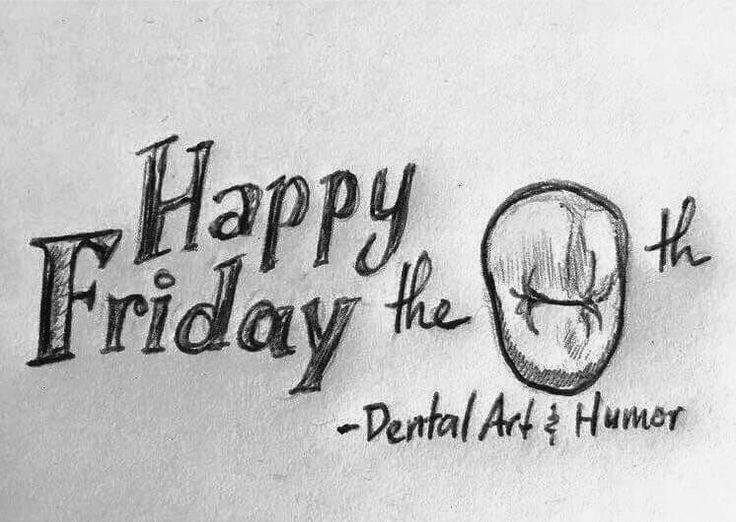 Happy
Friday the th
-Dental Art & Humor